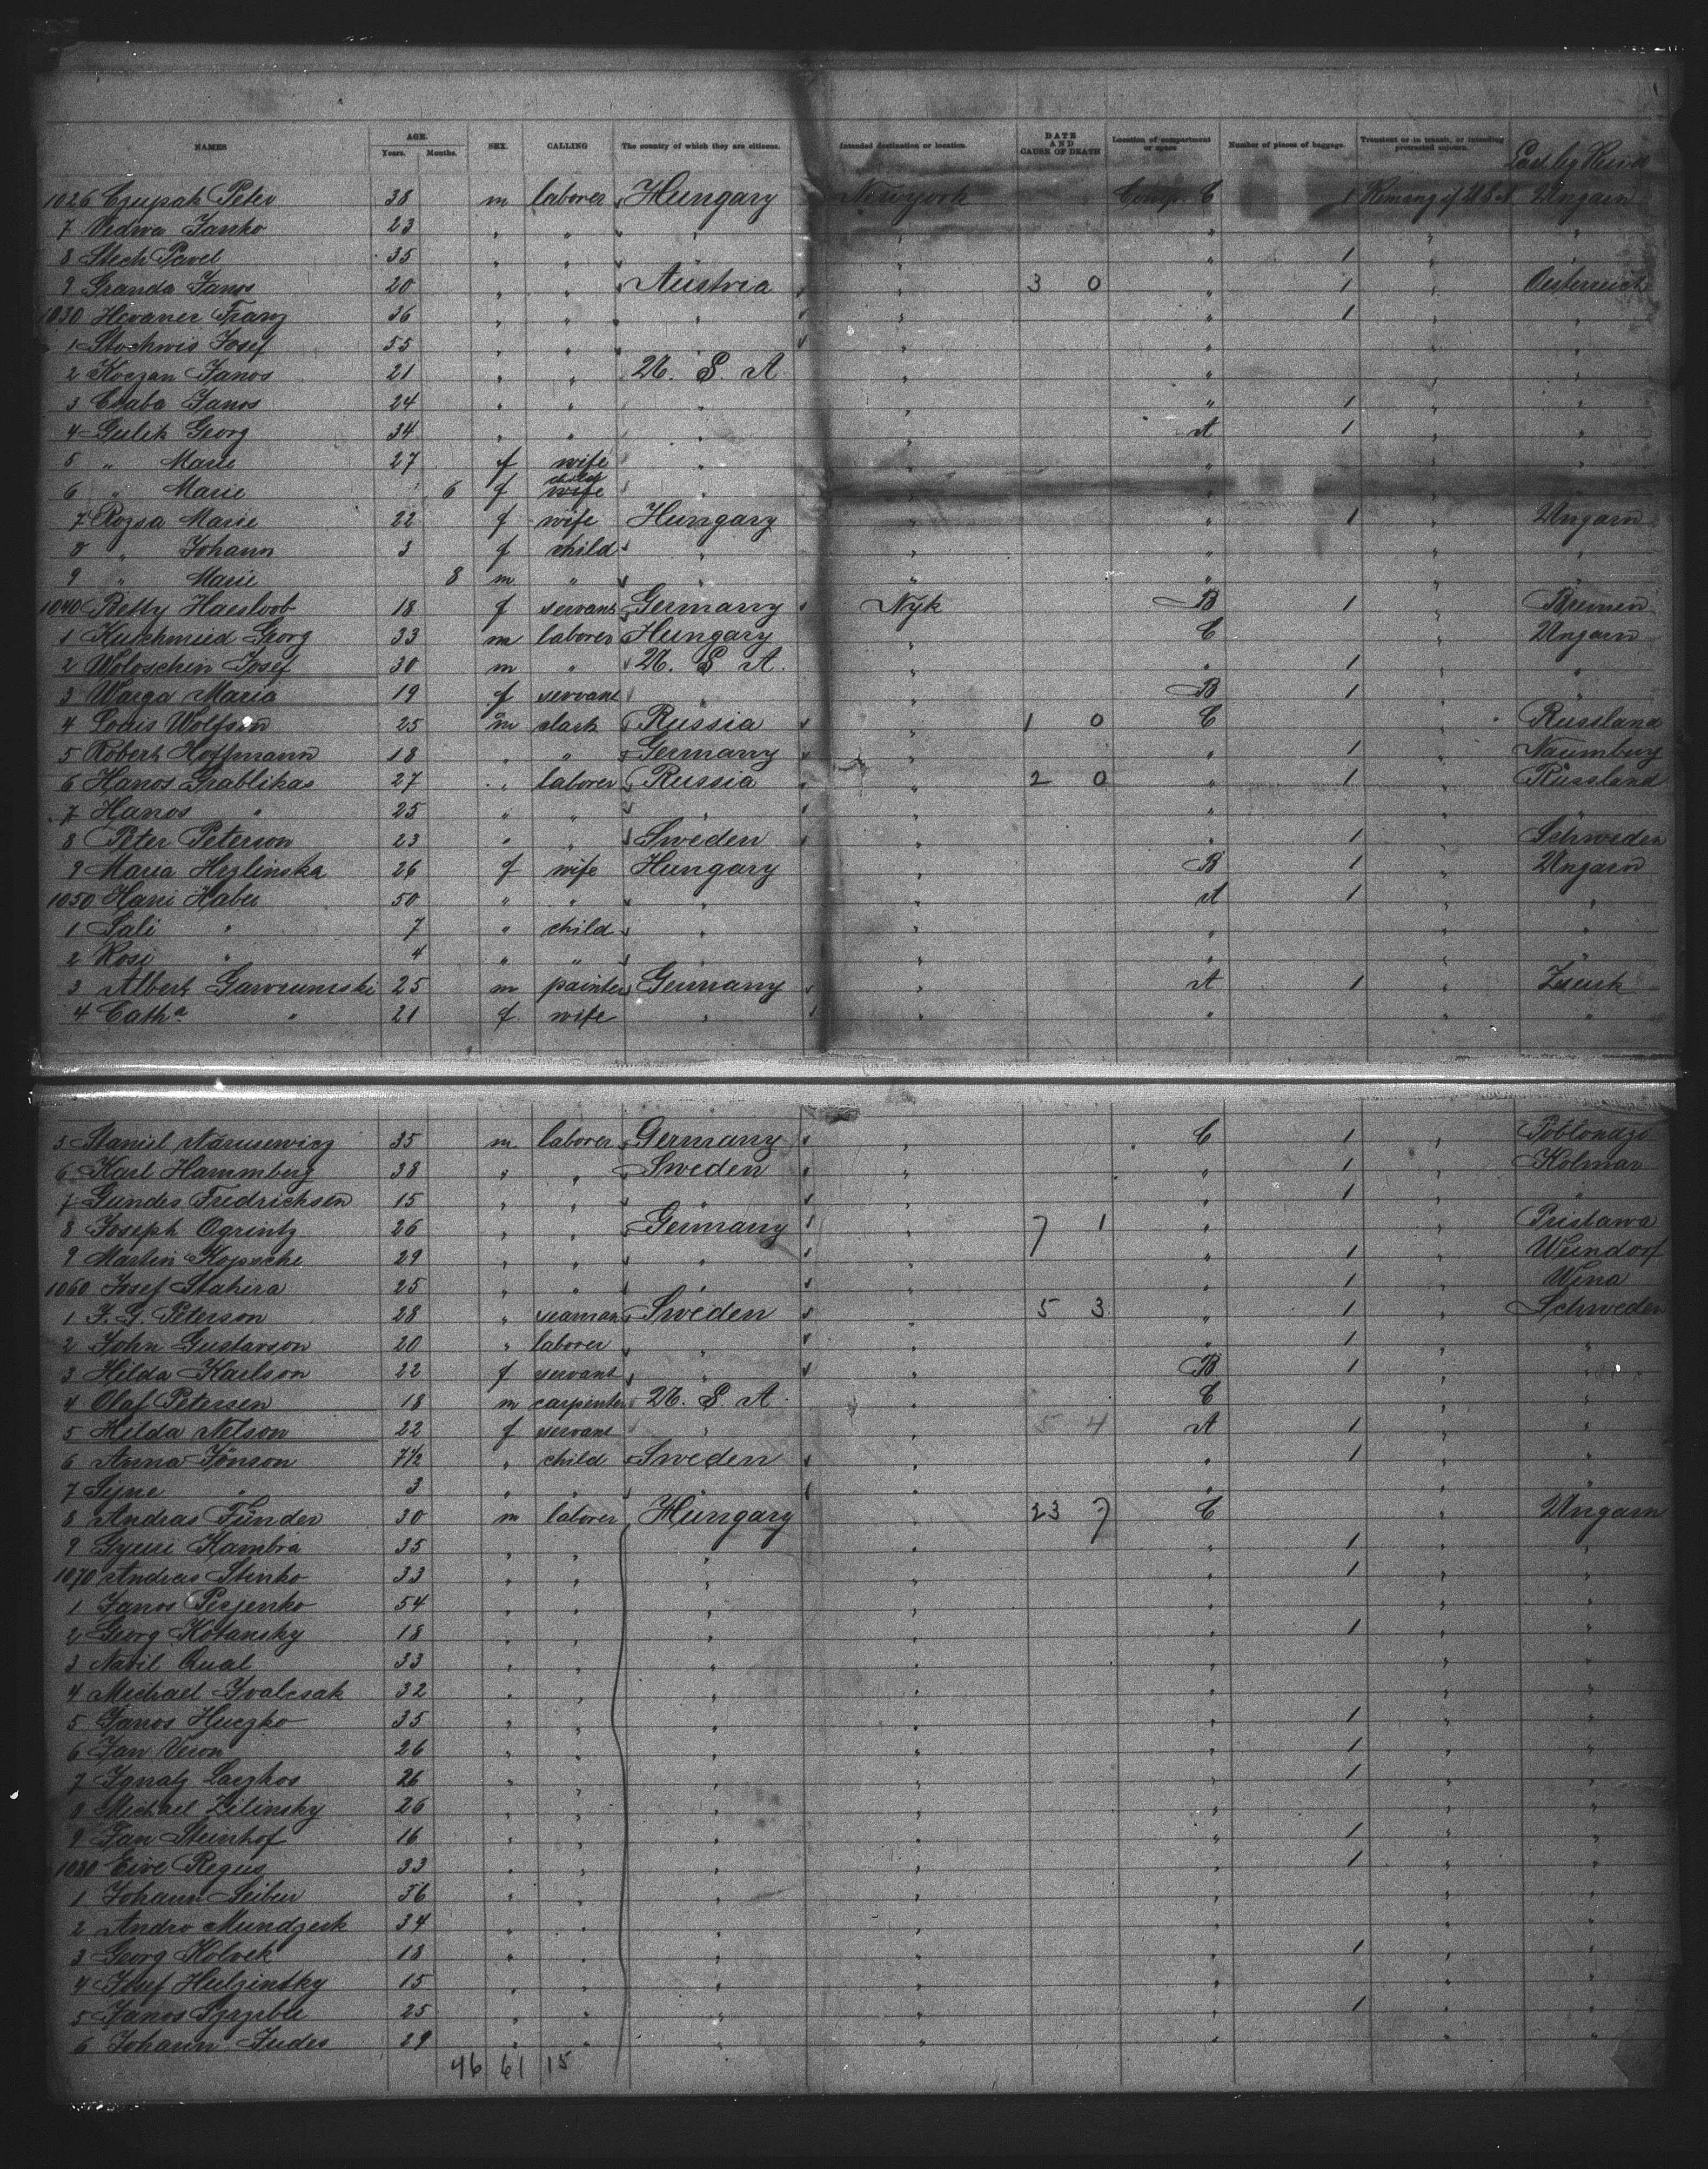 NAMES AGE. Years. Months. SEX. CALLING The country of which they are citizens. Intended destination or location. DATE AND CAUSE OF DEATH Location of compartment or space Number of pieces of baggage. Transient or in transit, or intending protracted sojourn.
1026 Czupak Peter 38 m laborer Hungary Newyork Comp. C 1 Ungarn
7 Vedwa Janko 23 " " " " " " "
8 Stech Pavel 35 " " " " " 1 " "
9 Granda Janos 20 " " Austria " 3 0 " 1 " Oesterreich
1030 Hevaner Franz 36 " " " " " 1 " "
1 Stochwis Josef 55 " " " " " " "
2 Koczan Janos 21 " " U. S. A. " " " "
3 Csaba Janos 24 " " " " " 1 " "
4 Gulik Georg 34 " " " " A 1 " "
5 " Marie 27 f wife " " " " "
6 " Marie 6 f child " " " " "
7 Rozsa Marie 22 f wife Hungary " " 1 " Ungarn
8 " Johann 3 f child " " " " "
9 " Marie 8 m " " " " " "
1040 Betty Haesloob 18 f servant Germany Nyk B 1 " Bremen
1 Kutschmied Georg 33 m laborer Hungary " C " Ungarn
2 Woloschin Josef 30 m " U. S. A. " " 1 " "
3 Warga Maria 19 f servant " " B 1 " "
4 Louis Wolfson 25 m clark Russia " 1 0 C " Russland
5 Robert Hoffmann 18 " " Germany " " 1 " Naumburg
6 Hanos Grablikas 27 " laborer Russia " 2 0 " 1 " Russland
7 Hanos " 25 " " " " " " "
8 Peter Peterson 23 " " Sweden " " 1 " Schweden
9 Maria Hrzlinska 26 f wife Hungary " B 1 " Ungarn
1050 Hani Haber 50 " " " " A 1 " "
1 Sali " 7 " child " " " " "
2 Rosi " 4 " " " " " " "
3 Albert Gawrumski 25 m painter Germany " A 1 "
4 Cath a " 21 f wife " " " " "
5 Staniel Narusewicz 35 m laborer Germany " C 1 " Poblondzo
6 Karl Hammberg 38 " " Sweden " " 1 " Kolmar
7 Gundes Fredricksen 15 " " " " " 1 " "
8 Joseph Ogrintz 26 " " Germany " 7 1 " " Pristawa
9 Martin Kopsche 29 " " " " " 1 " Weindorf
1060 Josef Stahera 25 " " " " " 1 " Wina
1 F. G. Peterson 28 " seaman Sweden " 5 3 " 1 " Schweden
2 John Gustavson 20 " laborer " " " 1 " "
3 Hilda Karlson 22 f servant " " B 1 " "
4 Olaf Petersen 18 m carpenter U. S. A. " C " "
5 Hilda Nelson 22 f servant " " 5 4 A 1 " "
6 Anna Jönson 7½ " child Sweden " " 1 " "
7 Syne " 3 " " " " " " "
8 Andras Funder 30 m laborer Hungary " 23 7 C " Ungarn
9 Gyuri Kambra 35 " " " " " 1 " "
1070 Andreas Stenko 33 " " " " " 1 " "
1 Janos Perjenko 54 " " " " " " "
2 Georg Kotansky 18 " " " " " 1 " "
3 Navil Qual 33 " " " " " " "
4 Michael Ivalcsak 32 " " " " " " "
5 Janos Huczko 35 " " " " " 1 " "
6 Jan Veron 26 " " " " " 1 " "
7 Ignatz Laczkos 26 " " " " " 1 " "
8 Michael Zilinsky 26 " " " " " " "
9 Jan Steinhof 16 " " " " " 1 " "
1080 Eive Regus 33 " " " " " 1 " "
1 Johann Seiben 36 " " " " " " "
2 Andro Mundzesk 34 " " " " " " "
3 Georg Kolvek 18 " " " " " 1 " "
4 Josef Hulzintky 15 " " " " " " "
5 Janos 25 " " " " " 1 " "
6 Johann Judes 29 " " " " " " "
46 61 15